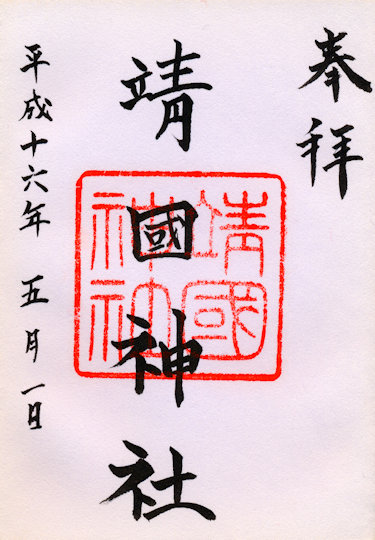 奉拝
靖國神社
靖國神社
平成十六年 五月一日